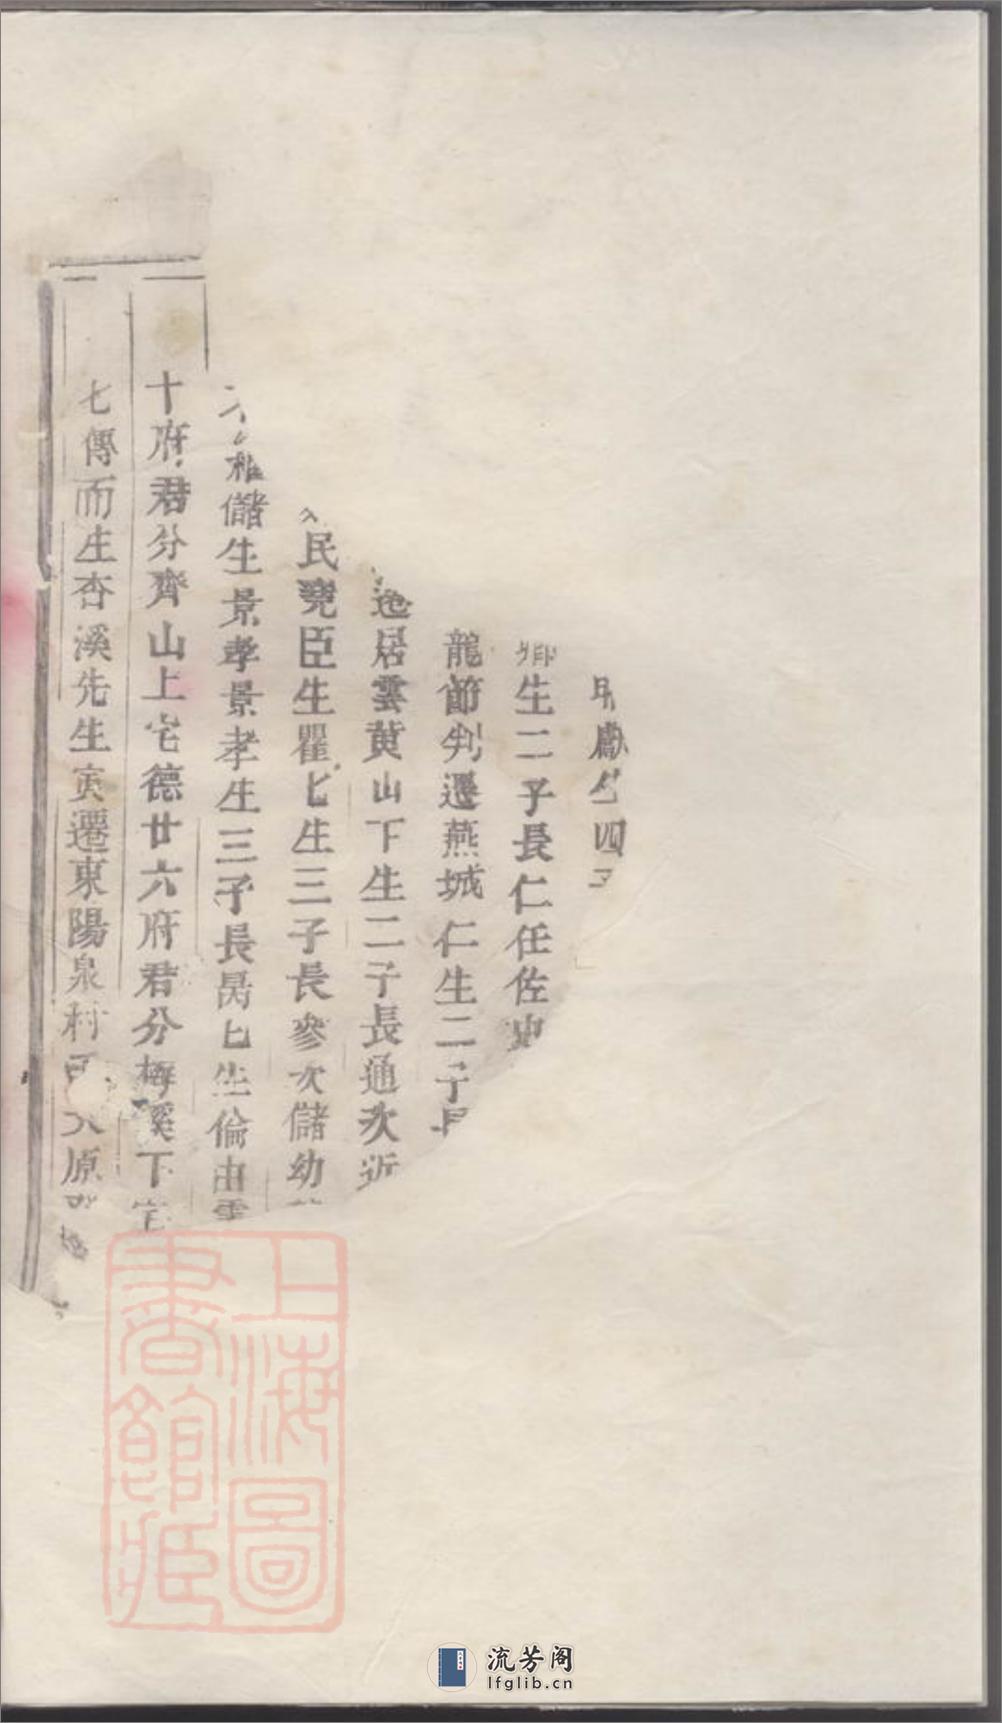 四
生二子長仁任佐史
龍節判遷燕城仁生二子長
逸居雲黃山下生二子長通次近
民堯臣生瞿匕生三子長參次儲幼
儲生景孝景孝生三子長昺匕生倫由雲
十府君分齊山上宅德廿六府君分梅溪下宅
七傳而生杏溪先生寅遷東陽泉村 原
上海圖書館藏
流芳阁
lfglib.cn